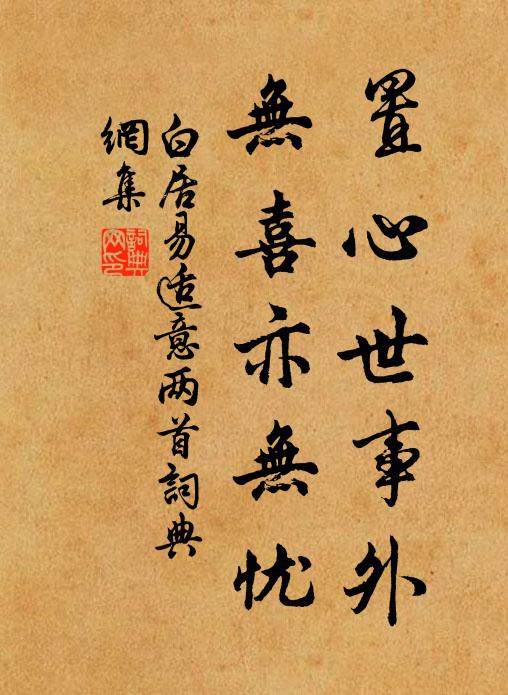 置心世事外
無喜亦無忧
白居易适意两首詞典
網集
詞典
网印